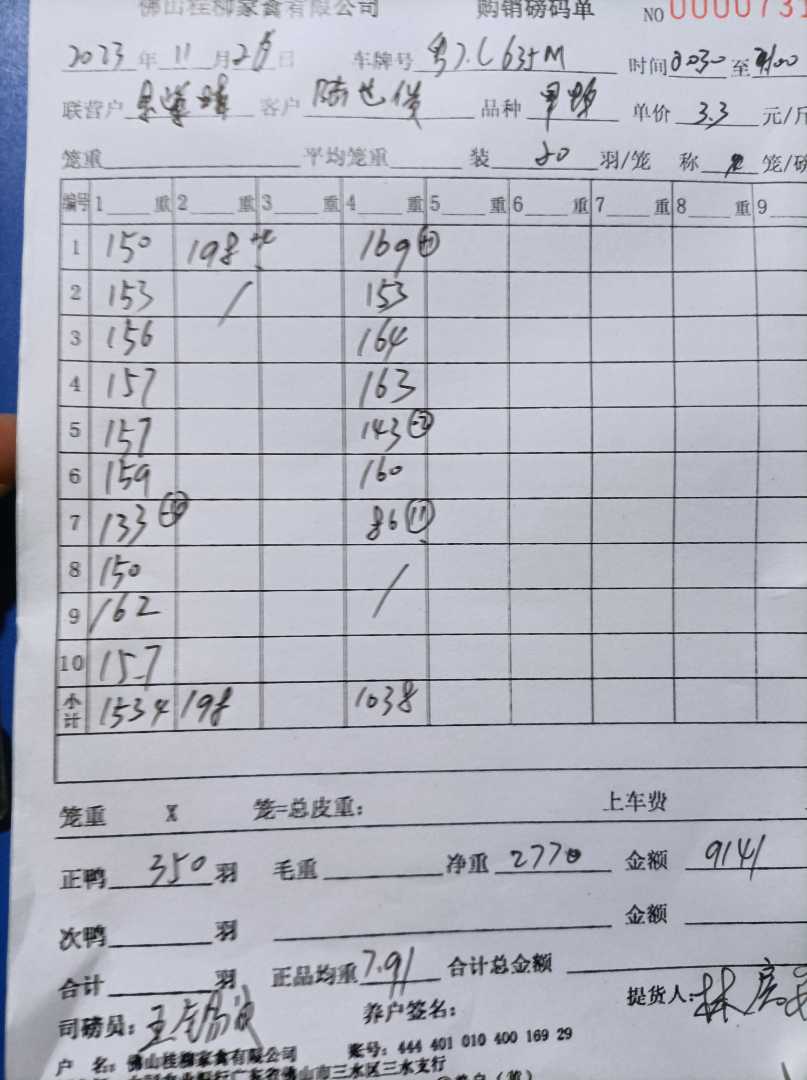 佛山桂柳家禽有限公司 购销磅码单 NO 0000731
2023 年 11 月 28 日 车牌号 时间 至
联营户 客户 陆 品种 单价 3.3 元/斤
笼重 平均笼重 装 羽/笼 称 笼/磅
编号 1 重 2 重 3 重 4 重 5 重 6 重 7 重 8 重 9
1 150 198 169
2 153 / 153
3 156 164
4 157 163
5 157 143 -2
6 159 160
7 133 86 11
8 150 /
9 162
10 157
小计 1534 198 1038
笼重 X 笼=总皮重: 上车费
正鸭 350 羽 毛重 净重 2770 金额 9141
次鸭 羽 金额
合计 羽 正品均重 7.91 合计总金额
司磅员: 王 养户签名: 提货人: 林
户 名: 佛山桂柳家禽有限公司 账号: 444 401 010 400 169 29
佛山市三水区三水支行